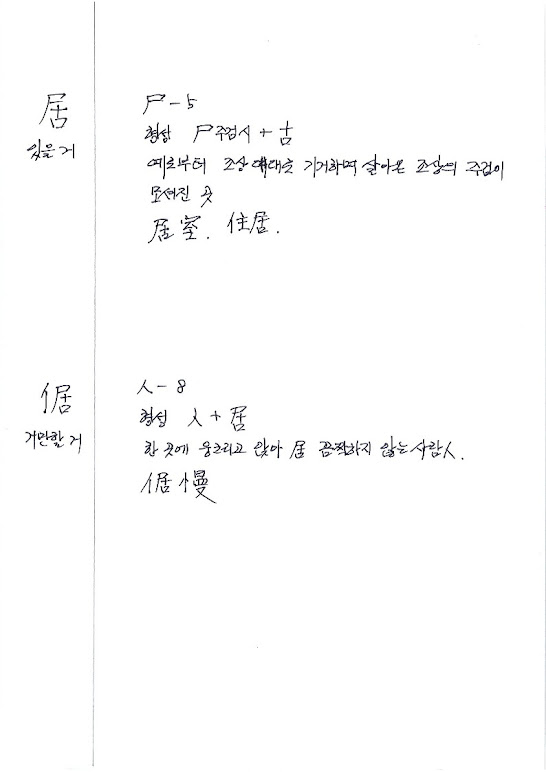 居
있을 거
尸 - 5
형성 尸 주검시 + 古
예로부터 조상 대대로 기거하며 살아온 조상의 주검이
모셔진 곳
居室. 住居.
倨
거만할 거
人 - 8
형성 人 + 居
한 곳에 웅크리고 앉아 居 꼼짝하지 않는 사람人.
倨慢